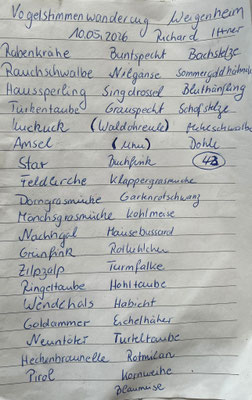 Vogelstimmenwanderung Weigenheim
10.05.2026 Richard Ittner
Rabenkrähe Buntspecht Bachstelze
Rauchschwalbe Nilgänse Sommergoldhähnch
Haussperling Singdrossel Bluthänfling
Türkentaube Grauspecht Schafstelze
Kuckuck (Waldohreule) Mehlschwalbe
Amsel (Uhu) Dohle
Star Buchfink 43
Feldlerche Klappergrasmücke
Dorngrasmücke Gartenrotschwanz
Mönchsgrasmücke Kohlmeise
Nachtigall Mäusebussard
Grünfink Rotkehlchen
Zilpzalp Turmfalke
Ringeltaube Hohltaube
Wendehals Habicht
Goldammer Eichelhäher
Neuntöter Turteltaube
Heckenbraunelle Rotmilan
Pirol Kornweihe
Blaumeise